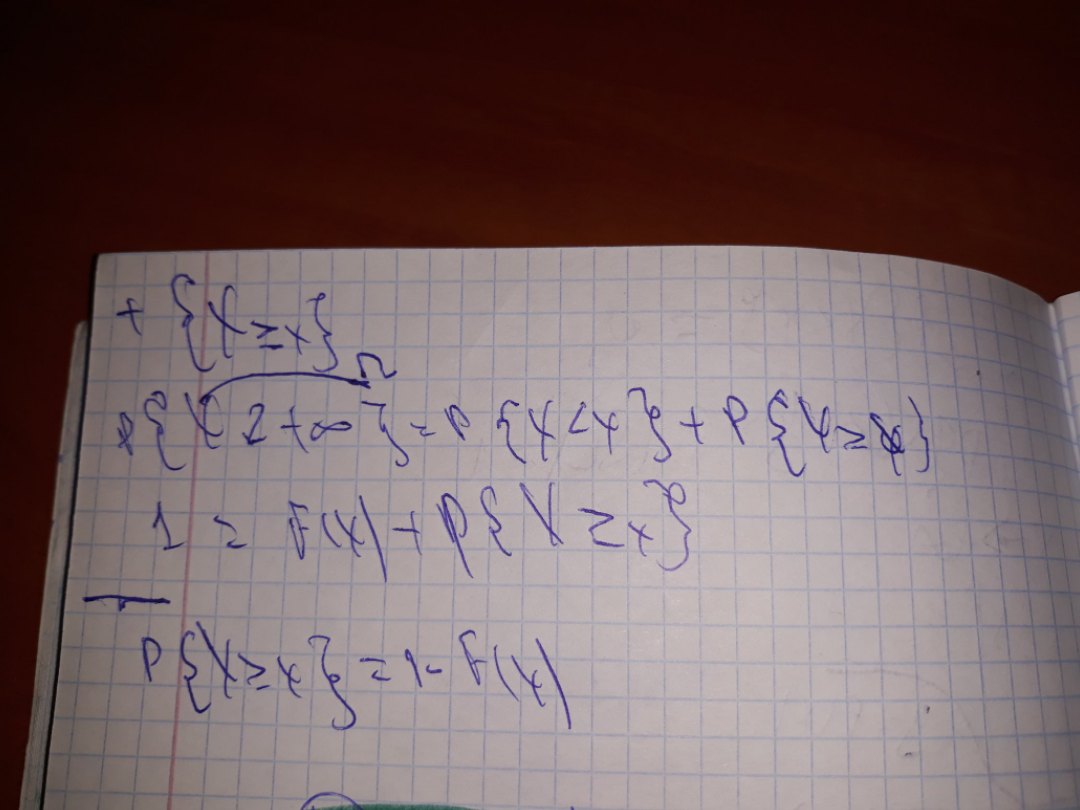 + {X ≥ x}
Ω
P{X < +∞} = P{X < x} + P{X ≥ x}
1 = F(x) + P{X ≥ x}
P{X ≥ x} = 1 - F(x)